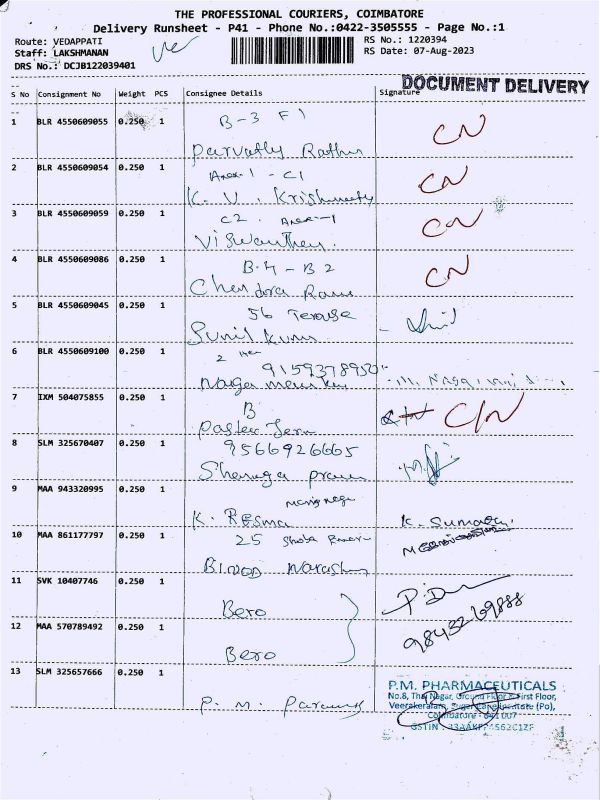 THE PROFESSIONAL COURIERS, COIMBATORE
Delivery Runsheet - P41 - Phone No.:0422-3505555 - Page No.:1
Route: VEDAPPATI
RS No.: 1220394
Staff: LAKSHMANAN
RS Date: 07-Aug-2023
DRS No.: DCJB122039401
DOCUMENT DELIVERY
S No Consignment No Weight PCS Consignee Details Signature
B-3 F1
1 BLR 4550609055 0.250 1 CN
Parvathy
2 BLR 4550609054 0.250 1 Area-1 - C1 CN
K. V. Krishnamurthy
3 BLR 4550609059 0.250 1 C2. Area-1 CN
Viswanathan.
4 BLR 4550609086 0.250 1 B-4 - B2 CN
Chandra
5 BLR 4550609045 0.250 1 56 Terrase
Sunil Kumar
6 BLR 4550609100 0.250 1
9159378950
Naga
7 IXM 504075855 0.250 1 B C/N
Paster
8 SLM 325670407 0.250 1 9566926665
Shanuga
9 MAA 943320995 0.250 1
K. Resma K. Sumathi
10 MAA 861177797 0.250 1 25 Shoba
Binod
11 SVK 10407746 0.250 1 Bero
9843269888
12 MAA 570789492 0.250 1
Bero
13 SLM 325657666 0.250 1
P. M.
P.M. PHARMACEUTICALS
No.8, Thai Nagar, Ground Floor & First Floor,
Veerakeralam, Sugar Cane Institute (Po),
Coimbatore - 641 007
GSTIN :